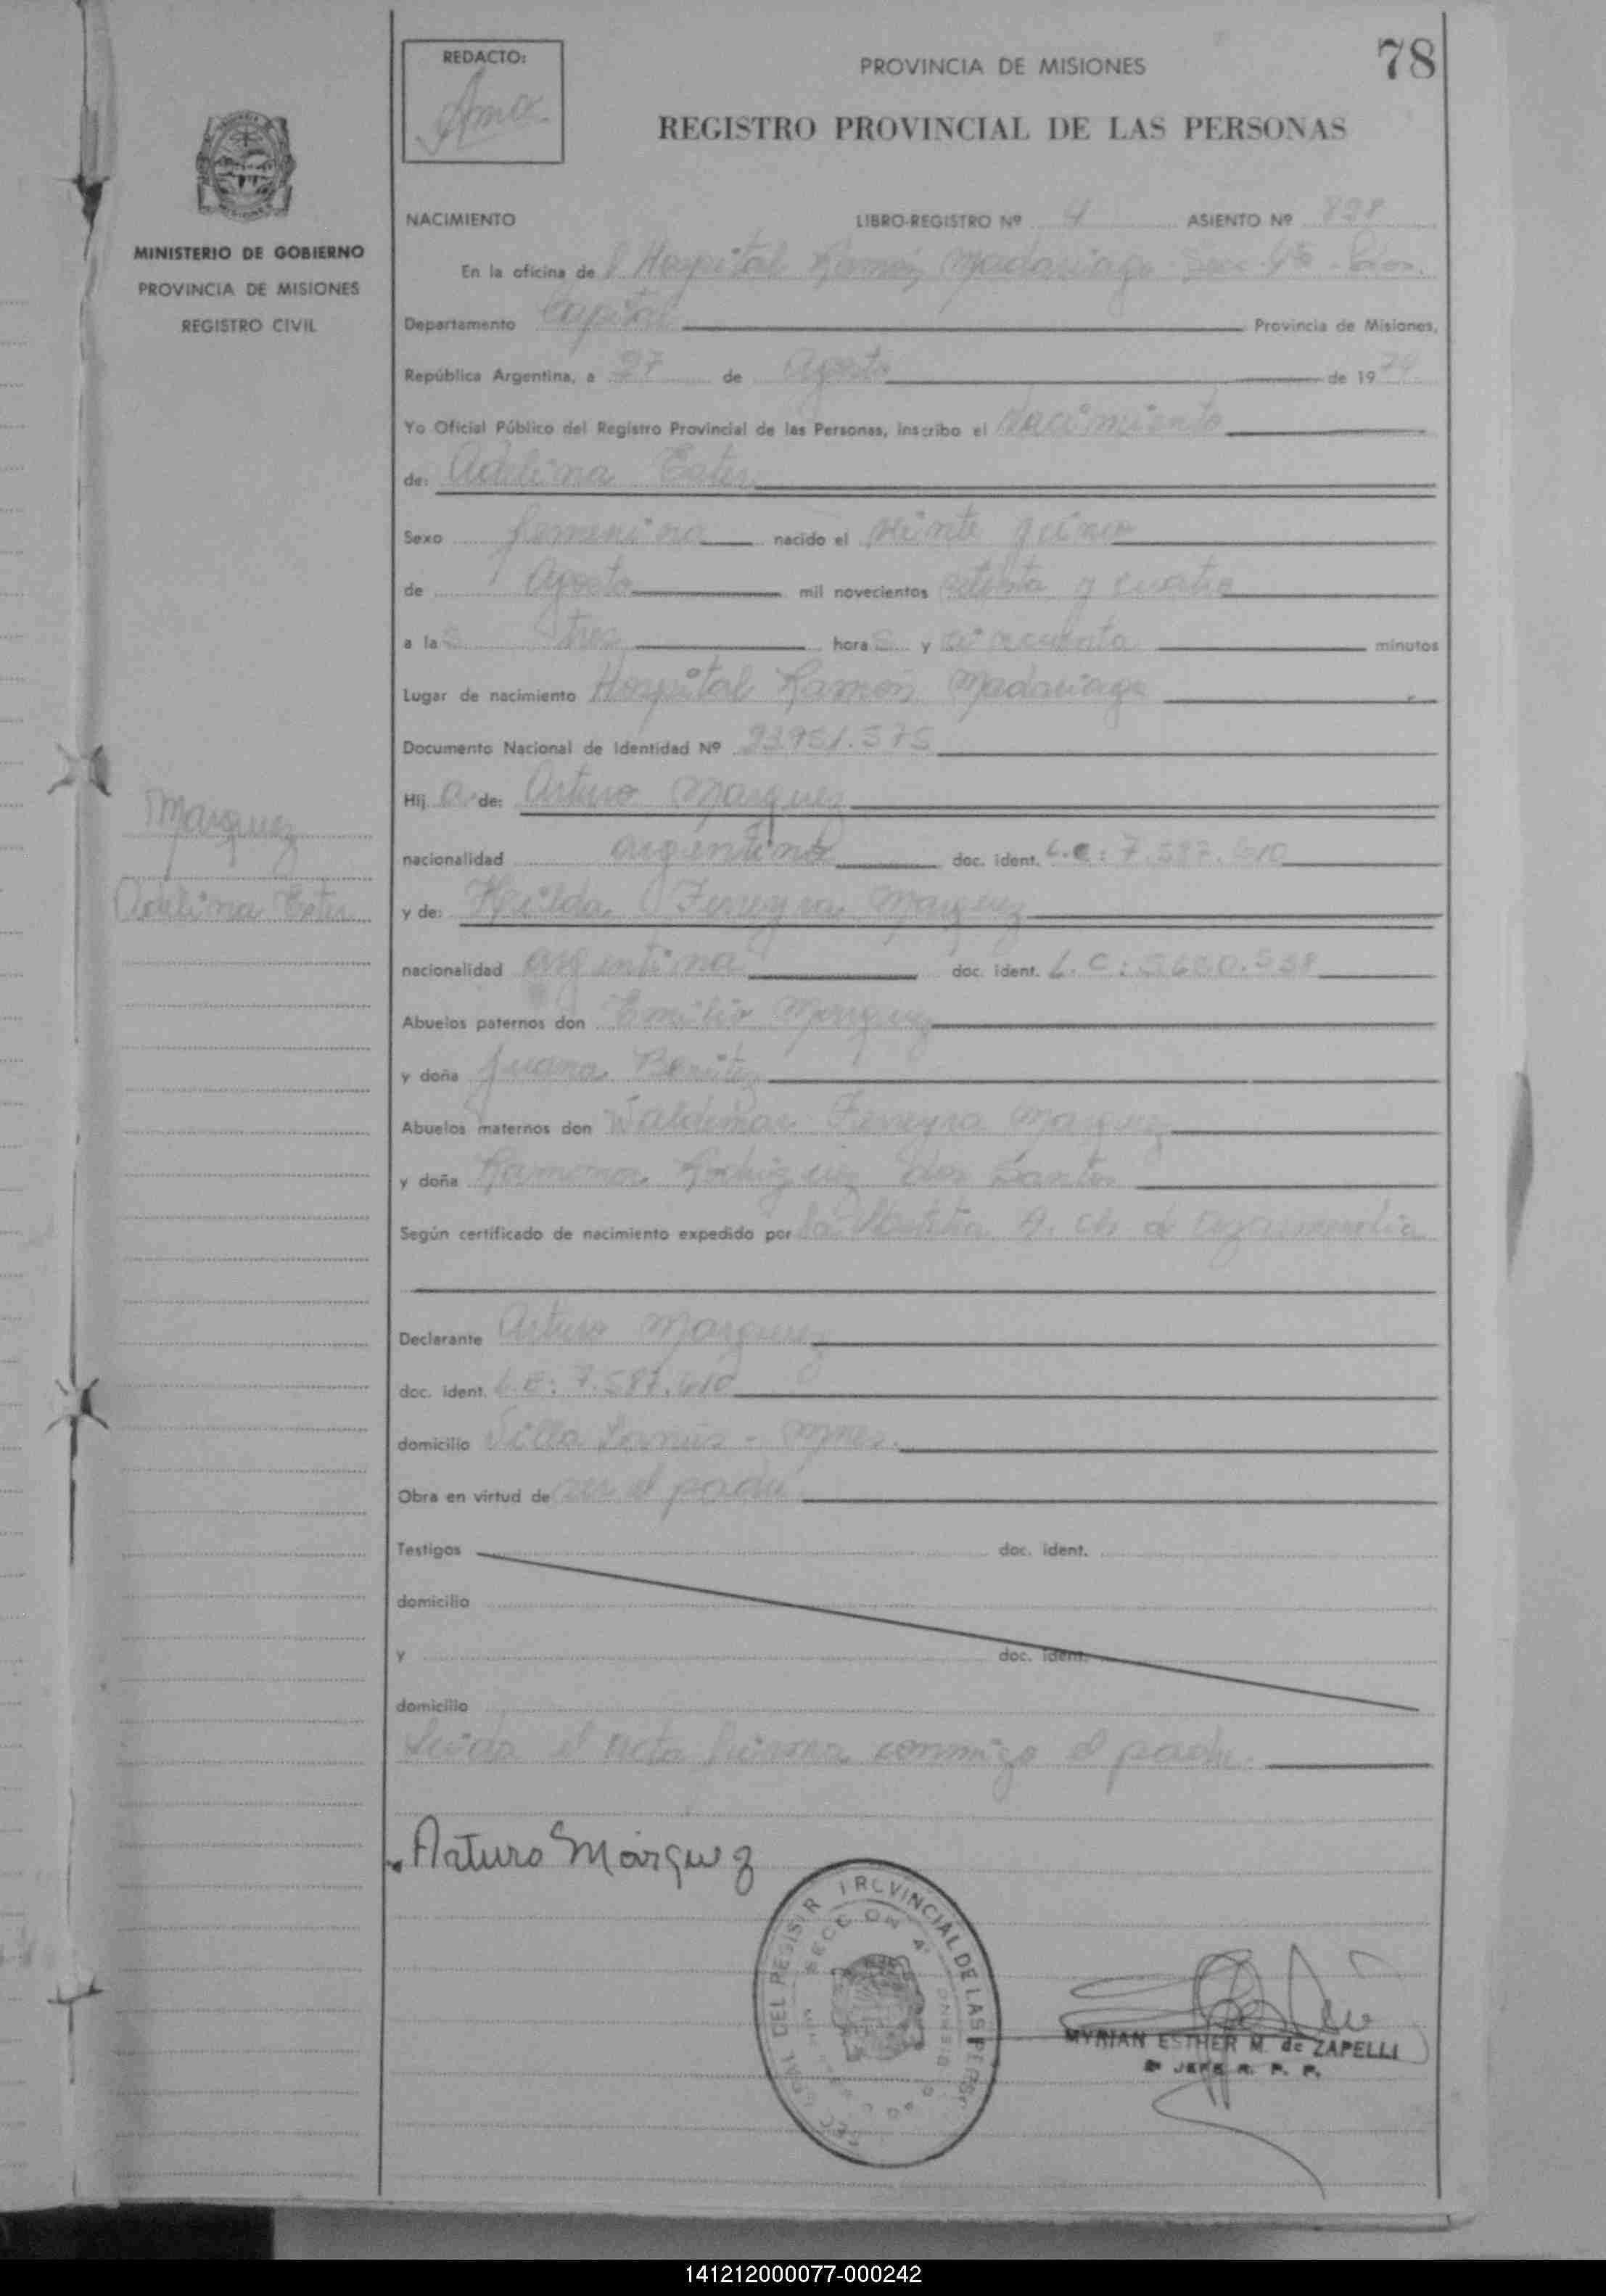 78
REDACTO:
PROVINCIA DE MISIONES
REGISTRO PROVINCIAL DE LAS PERSONAS
MINISTERIO DE GOBIERNO
PROVINCIA DE MISIONES
REGISTRO CIVIL
NACIMIENTO LIBRO-REGISTRO Nº 4 ASIENTO Nº
En la oficina de l Hospital Ramón Madariaga Secc. 4ta
Departamento Capital Provincia de Misiones,
República Argentina, a 27 de Agosto de 1974
Yo Oficial Público del Registro Provincial de las Personas, inscribo el Nacimiento
de: Adelina Ester
Sexo femenino nacido el veinte y cinco
de Agosto mil novecientos setenta y cuatro
a las tres horas y cincuenta minutos
Lugar de nacimiento Hospital Ramón Madariaga
Documento Nacional de Identidad Nº 23.951.575
Marquez
Adelina Ester
Hij a de: Arturo Marquez
nacionalidad argentino doc. ident. L.E: 7.587.610
y de: Hilda Ferreyra Marquez
nacionalidad argentina doc. ident. L.C:
Abuelos paternos don Emilio Marquez
y doña Juana Benitez
Abuelos maternos don Waldemar Ferreyra Marquez
y doña Ramona Rodriguez dos Santos
Según certificado de nacimiento expedido por la Obstetra A. Ch de
Declarante Arturo Marquez
doc. ident. L.E: 7.587.610
domicilio Villa Lanús - Mnes.
Obra en virtud de ser el padre
Testigos doc. ident.
domicilio
y doc. ident.
domicilio
Leída el acta firma conmigo el padre.
Arturo Márquez
SECCION 4ª
POSADAS
MYRIAN ESTHER M. de ZAPELLI
JEFE R. P. P.
141212000077-000242